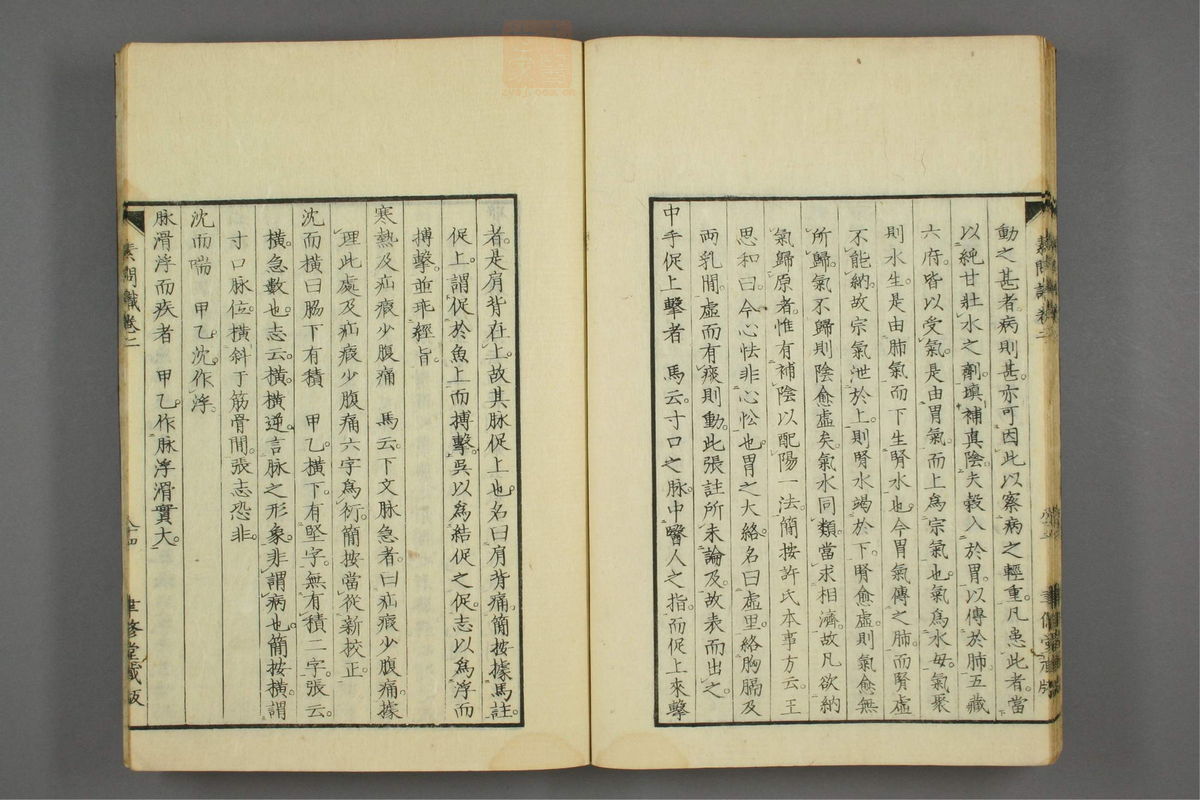 動之甚者。病則甚。亦可因此以察病之輕重。凡患此者。當
以純甘壯水之劑。填補真陰。夫穀入於胃。以傳於肺。五藏
六府。皆以受氣。是由胃氣。而上爲宗氣也。氣爲水母。氣聚
則水生。是由肺氣。而下生腎水也。今胃氣傳之肺。而腎虛
不能納。故宗氣泄於上。則腎水竭於下。腎愈虛。則氣愈無
所歸。氣不歸。則陰愈虛矣。氣水同類。當求相濟。故凡欲納
氣歸原者。惟有補陰以配陽一法。簡按許氏本事方云。王
思和曰。今心怯非心忪也。胃之大絡。名曰虛里。絡胸膈及
兩乳間。虛而有痰則動。此張註所未論及。故表而出之。
中手促上擊者　馬云。寸口之脉。中醫人之指。而促上來擊
者。是肩背在上。故其脉促上也。名曰肩背痛。簡按據馬註
促上。謂促於魚上而搏擊。吳以爲結促之促。志以爲浮而
搏擊。並乖經旨。
寒熱及疝瘕少腹痛　馬云。下文脉急者。曰疝瘕少腹痛。據
理此處及疝瘕少腹痛六字爲衍。簡按當從新校正
沈而橫曰脇下有積　甲乙。橫下。有堅字。無有積二字。張云。
橫。急數也。志云。橫。橫逆。言脉之形象。非謂病也。簡按橫。謂
寸口脉位。橫斜于筋骨間。張志恐非。
沈而喘　甲乙。沈。作浮。
脉滑浮而疾者　甲乙。作脉浮滑實大。
素問識卷二
八十四
聿修堂藏版